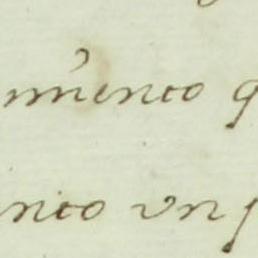 miento q
nto un p